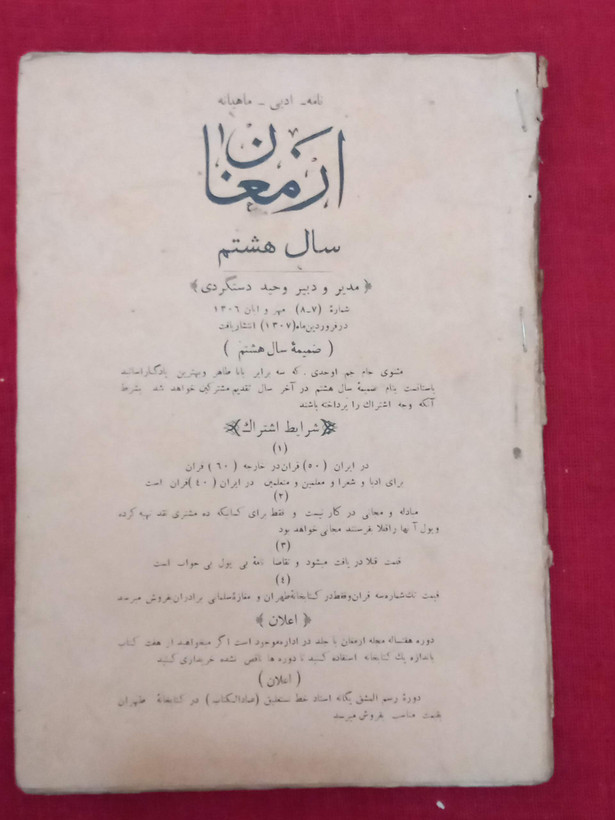 نامه - ادبی - ماهیانه
ارمغان
سال هشتم
مدیر و دبیر وحید دستگردی
شمارهٔ (۷-۸) مهر و ابان ۱۳۰۶
در فروردین ماه (۱۳۰۷) انتشار یافت
( ضمیمهٔ سال هشتم )
مثنوی جام جم اوحدی که سه برابر بابا طاهر وبهترین یادگار اساتید
باستانست بنام ضمیمهٔ سال هشتم در آخر سال تقدیم مشترکین خواهد شد بشرط
آنکه وجه اشتراك را پرداخته باشند
شرایط اشتراك
(۱)
در ایران (۵۰) قران در خارجه (۶۰) قران
برای ادبا و شعرا و معلمین و متعلمین در ایران (۴۰) قران است
(۲)
مبادله و مجانی در کار نیست و فقط برای کسانیکه ده مشتری نقد تهیه کرده
وپول آنها را قبلا بفرستند مجانی خواهد بود
(۳)
قیمت قبلا دریافت میشود و تقاضا نامهٔ بی پول بی جواب است
(٤)
قیمت تك شماره سه قران وفقط در کتابخانهٔ طهران و مغازهٔ سلمانی برادران بفروش میرسد
( اعلان )
دوره هفتساله مجله ارمغان با جلد در اداره موجود است اگر میخواهید از هفت کتاب
باندازه یك کتابخانه استفاده کنید تا دوره ها ناقص نشده خریداری کنید
( اعلان )
دورهٔ رسم المشق یگانه استاد خط نستعلیق (عمادالکتاب) در کتابخانهٔ طهران
بقیمت مناسب بفروش میرسد